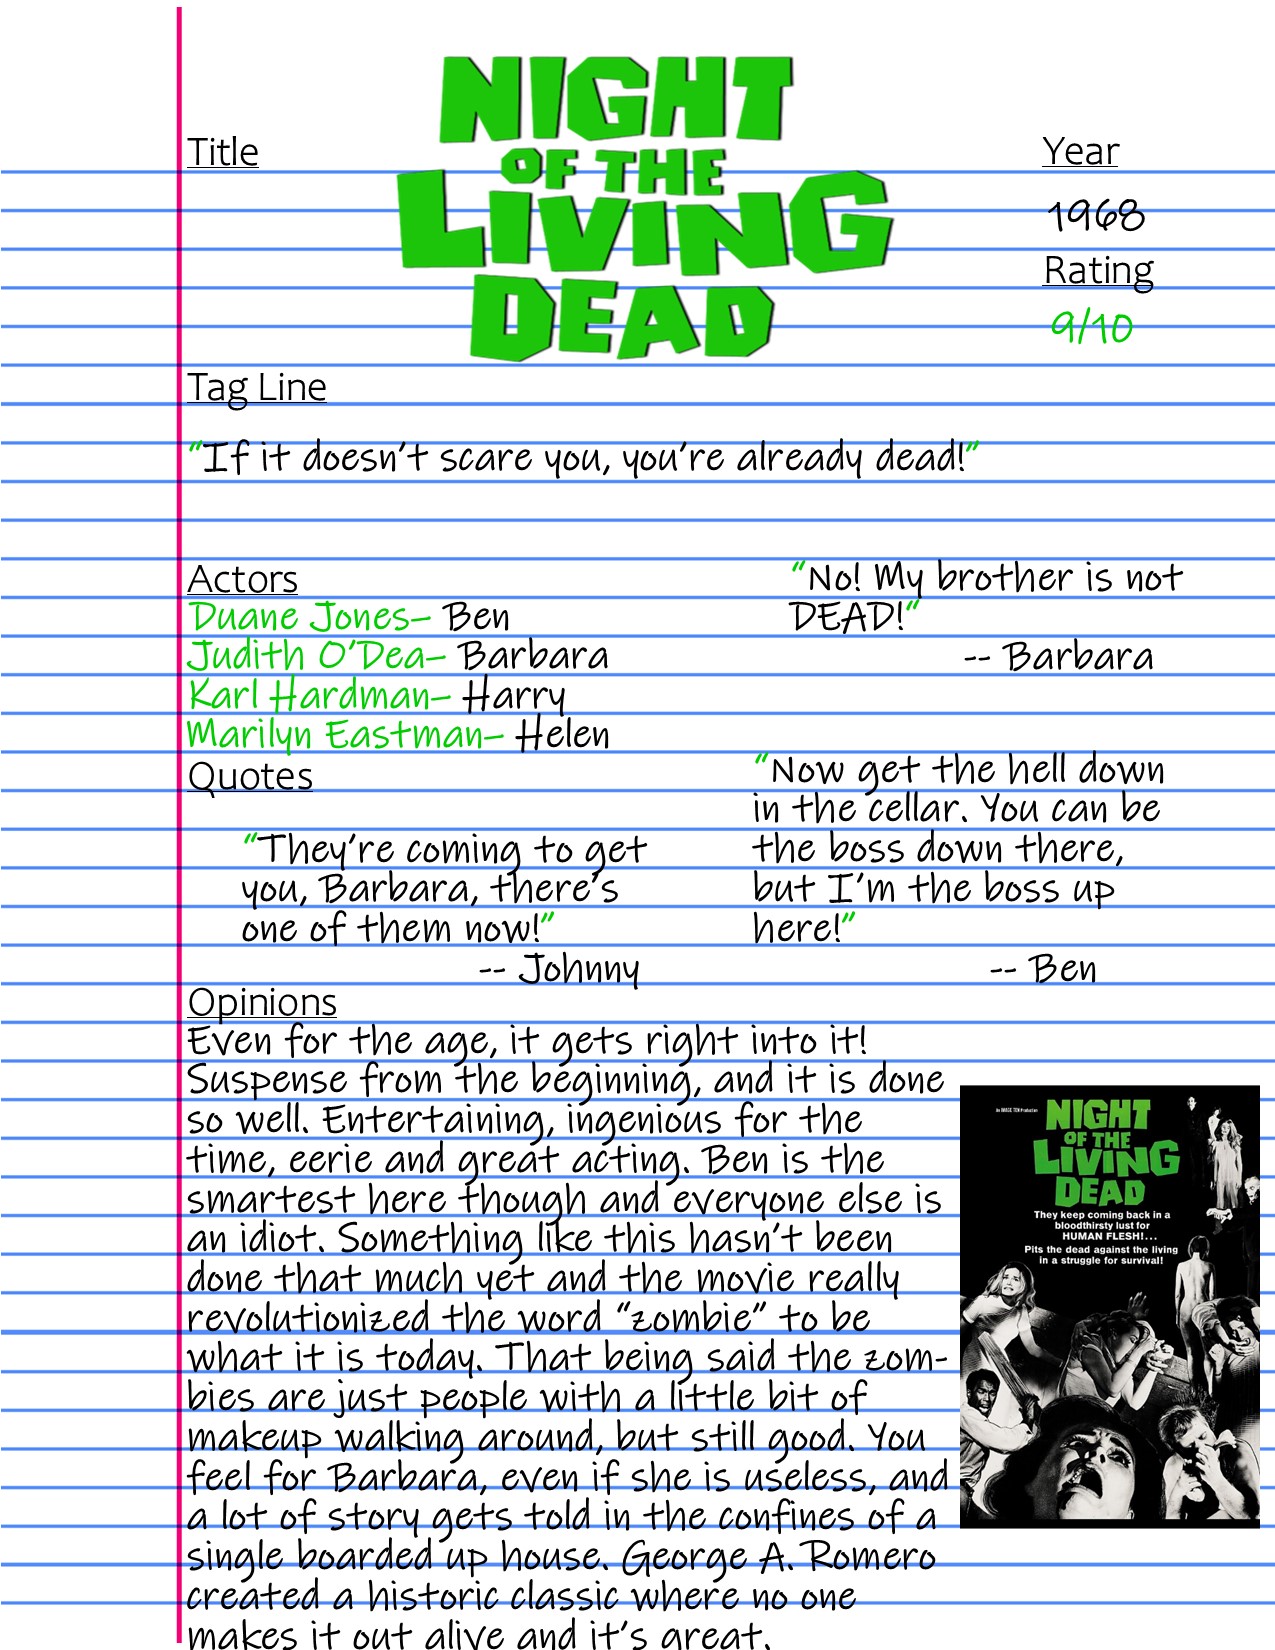 NIGHT
OF THE
LIVING
DEAD
Title
Year
1968
Rating
9/10
Tag Line
"If it doesn't scare you, you're already dead!"
Actors
Duane Jones– Ben
Judith O'Dea– Barbara
Karl Hardman– Harry
Marilyn Eastman– Helen
"No! My brother is not
DEAD!"
-- Barbara
Quotes
"They're coming to get
you, Barbara, there's
one of them now!"
-- Johnny
"Now get the hell down
in the cellar. You can be
the boss down there,
but I'm the boss up
here!"
-- Ben
Opinions
Even for the age, it gets right into it!
Suspense from the beginning, and it is done
so well. Entertaining, ingenious for the
time, eerie and great acting. Ben is the
smartest here though and everyone else is
an idiot. Something like this hasn't been
done that much yet and the movie really
revolutionized the word "zombie" to be
what it is today. That being said the zom-
bies are just people with a little bit of
makeup walking around, but still good. You
feel for Barbara, even if she is useless, and
a lot of story gets told in the confines of a
single boarded up house. George A. Romero
created a historic classic where no one
makes it out alive and it's great.
An IMAGE TEN Production
NIGHT
OF THE
LIVING
DEAD
They keep coming back in a
bloodthirsty lust for
HUMAN FLESH!...
Pits the dead against the living
in a struggle for survival!